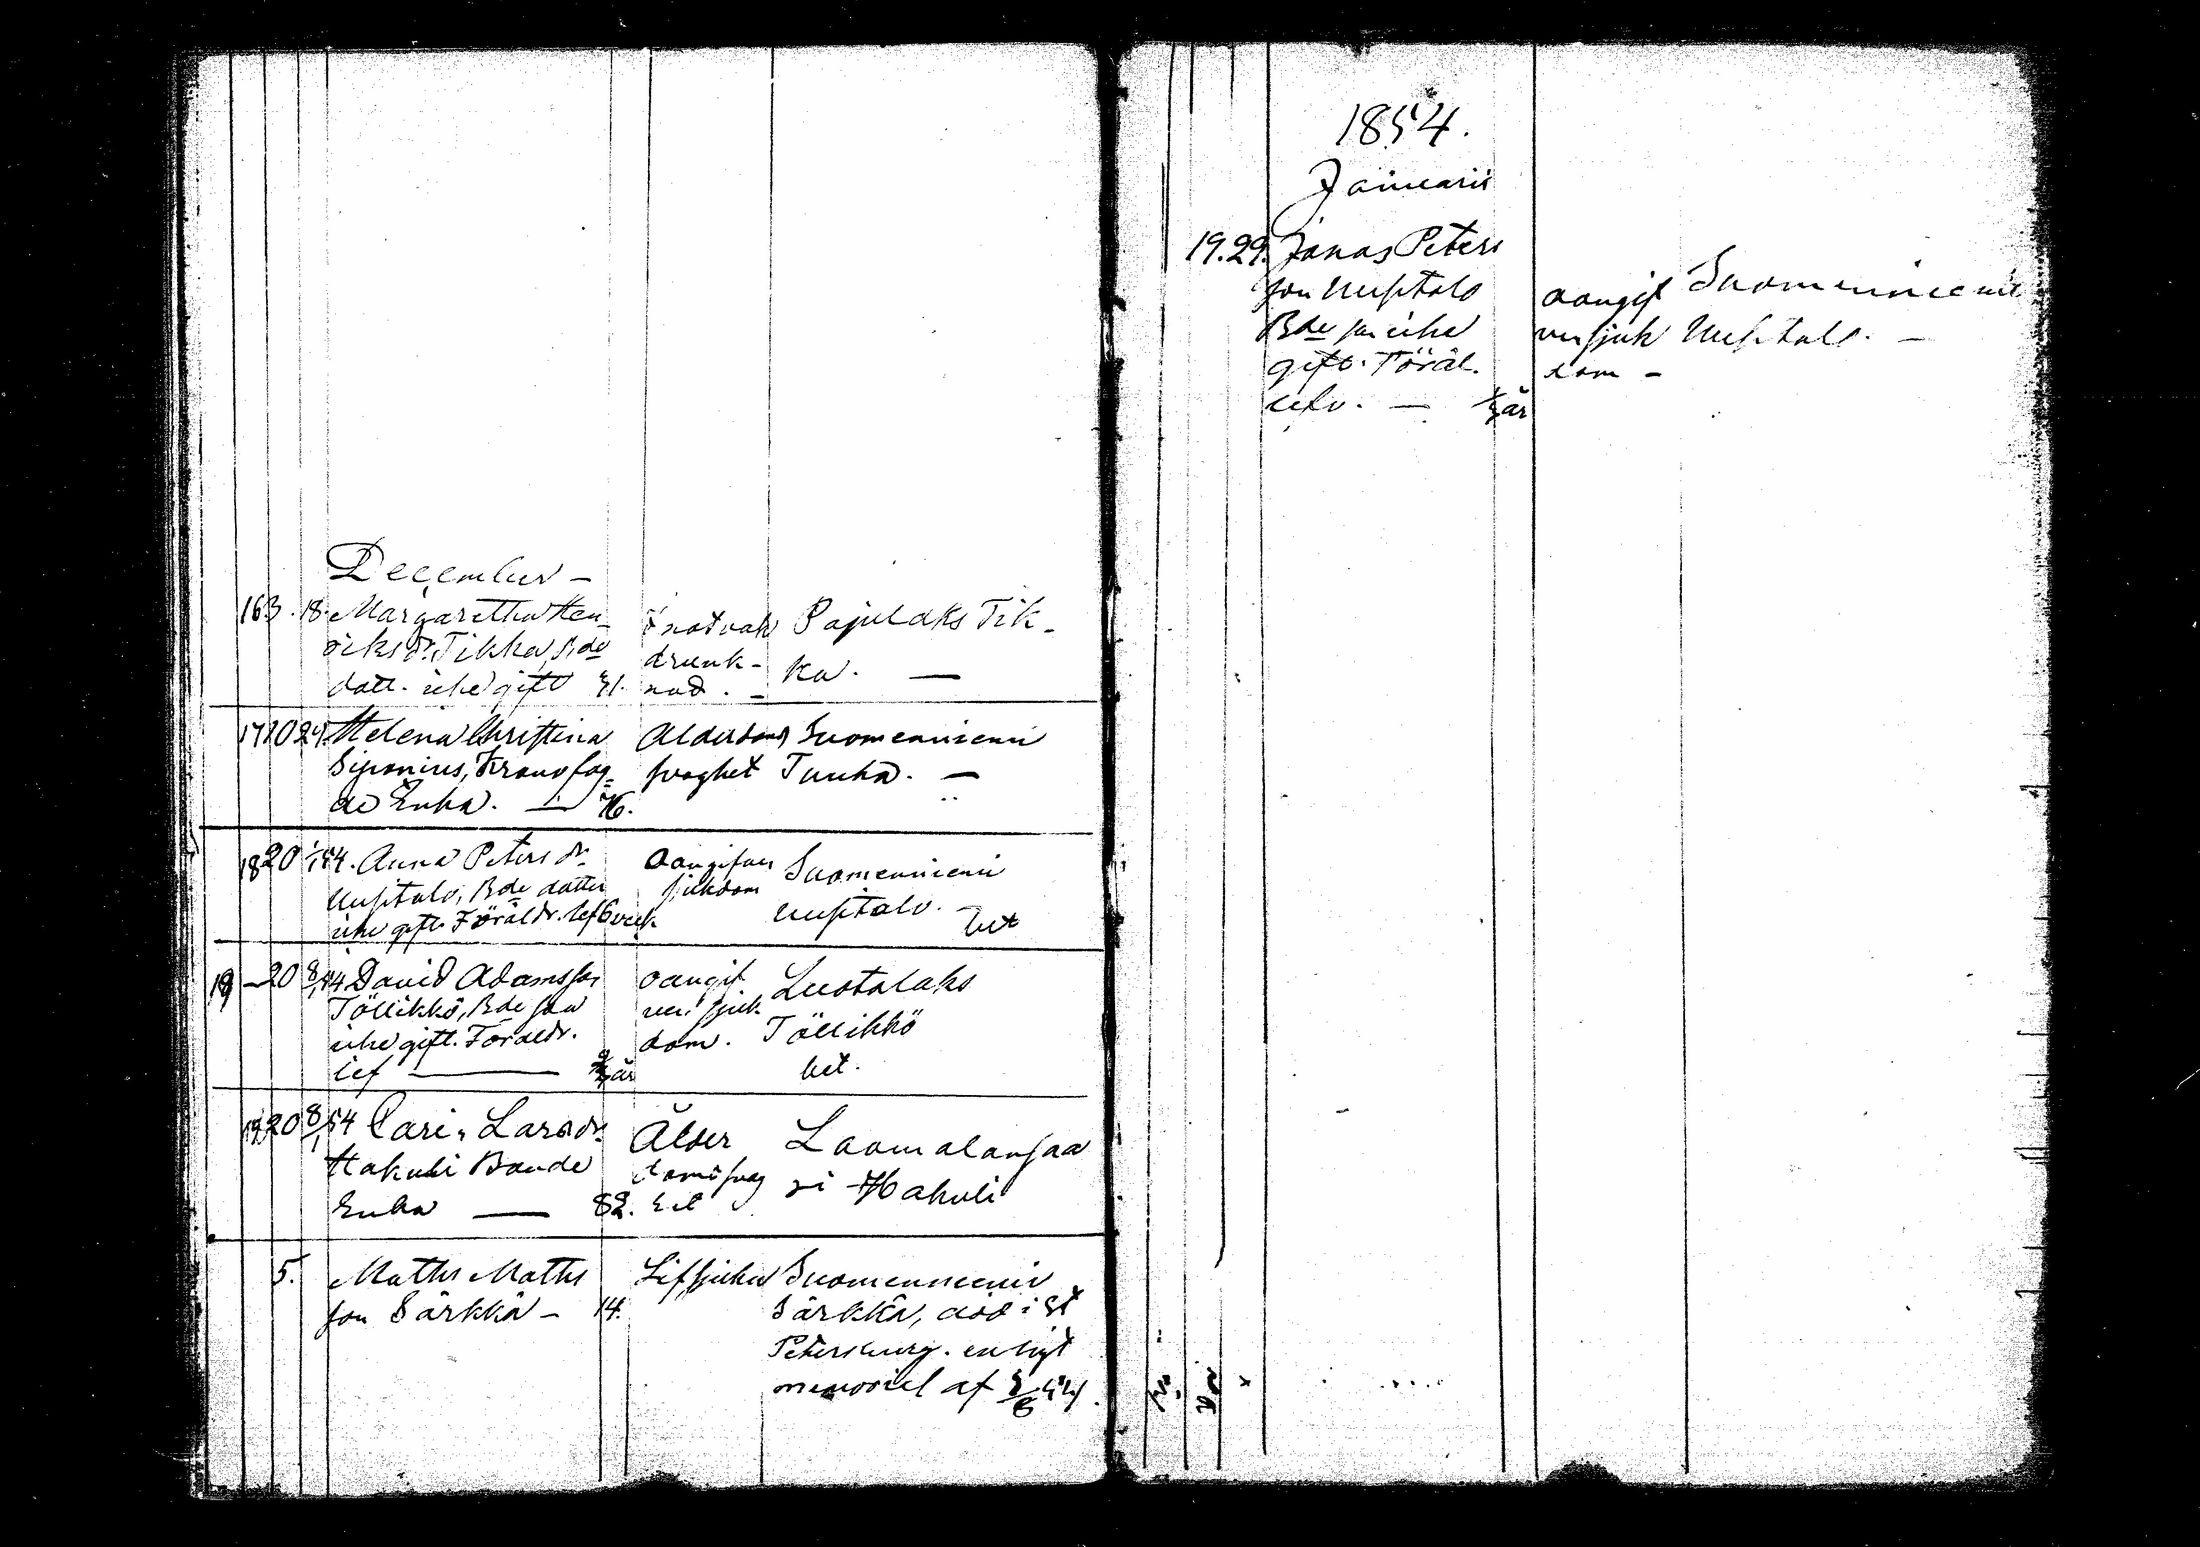 December –
163. 18. Margaretha Hen-
riks dr. Tikka, Bde
dott. icke gift 31.
drunk-
nad. –
Pajulaks Tik-
ka. —
17 10 24. Helena Christina
Siponius, Kronofog-
de Enka. — 76.
Alderdoms
svaghet
Suomenniemi
Tuuha. —
18 20 1/1 54. Anna Peters dr.
Uusitalo, Bde dotter
icke gift. Föräldr. lef 6 veck
Oangifven
sjukdom
Suomenniemi
Uusitalo. –
let
19 – 20 8/1 54 David Adamsson
Töllikkö, Bde son
icke gift. Föräldr.
lef — år
oangif
ven sjuk
dom.
Luotolaks
Töllikkö
let.
19. 20 8/1 54 Carin Larsdr.
Hakuli Bonde
Enka — 82.
Ålder
doms svag
het
Loomalansaa
ri Hakuli
5. Maths Maths
son Särkkä – 14.
Lifsjuka
Suomenniemi
Särkkä, död i St
Petersburg. enligt
memorial af
1854.
Januarii
19. 29. Jonas Peters
son Uusitalo
Bde son icke
gift. Föräl.
lefv. — ½ år
oangif
ven sjuk
dom –
Suomenniemi
Uusitalo. –